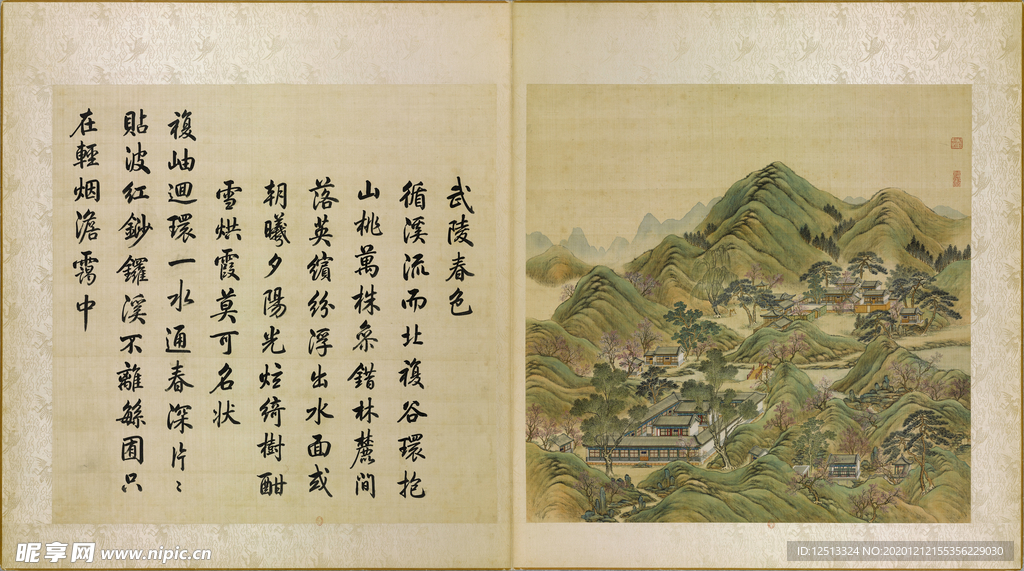 武陵春色
循溪流而北複谷環抱
山桃萬株参錯林麓間
落英繽紛浮出水面或
朝曦夕陽光炫綺樹酣
雪烘霞莫可名状
複岫迴環一水通春深片〻
貼波紅鈔鑼溪不離繇圃只
在輕烟澹靄中
昵享网 www.nipic.cn
ID:12513324 NO:20201212155356229030